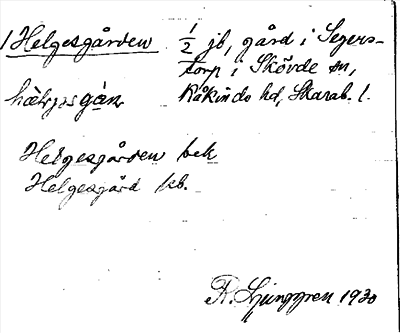 1 Helgesgården 1/2 jb, gård i Segers-
torp i Skövde sn,
Kåkinds hd, Skarab. l.
Helgesgården bek
Helgesgård kb.
R. Ljunggren 1930